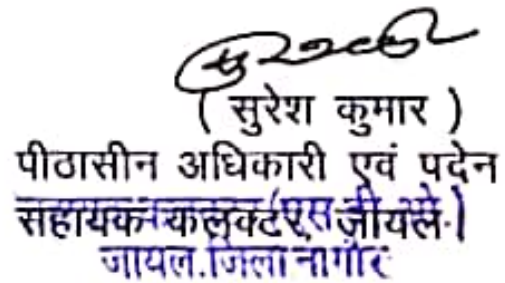 ( सुरेश कुमार )
पीठासीन अधिकारी एवं पदेन
सहायक कलक्टर, जायल।
जायल.जिला नागौर